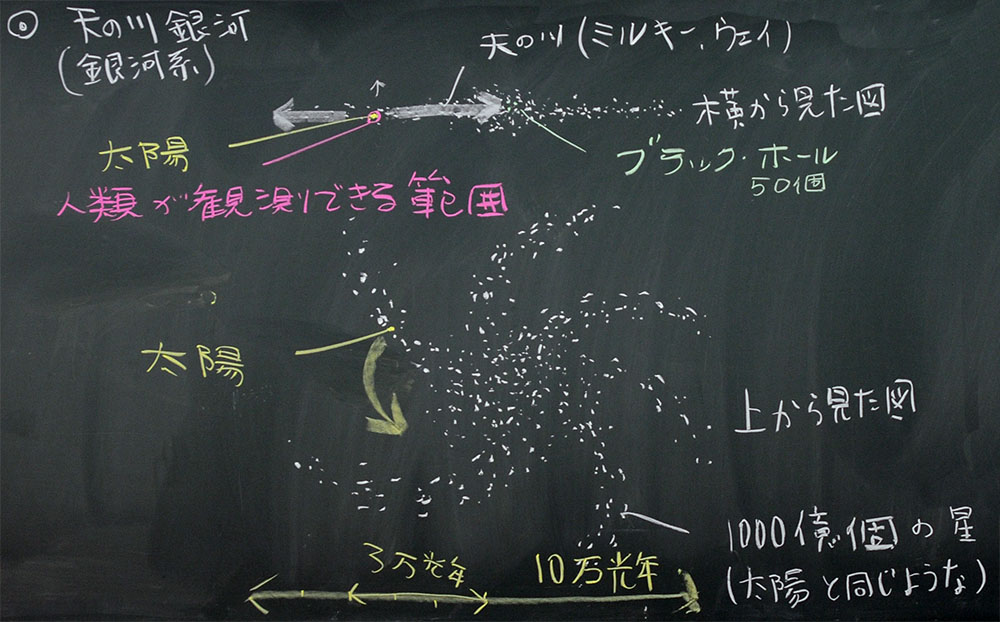 ◎ 天の川銀河
(銀河系)
天の川(ミルキーウェイ)
横から見た図
太陽
ブラック・ホール
50個
人類が観測できる範囲
太陽
上から見た図
1000億個の星
(太陽と同じような)
3万光年
10万光年